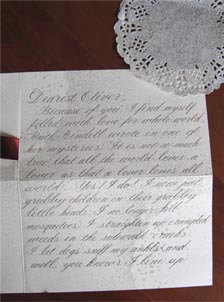 Dearest Oliver,
Because of you, I find myself
filled with love for whole world.
Ruth Rendell wrote in one of
her mysteries: It is not so much
true that all the world loves a
lover as that a lover loves all
world. Yes! I do! I now pat
grubby children on their grubby
little heads. I no longer kill
mosquitoes. I straighten up crumpled
weeds in the sidewalk cracks.
I let dogs sniff my ankles and
well, you know. I line up